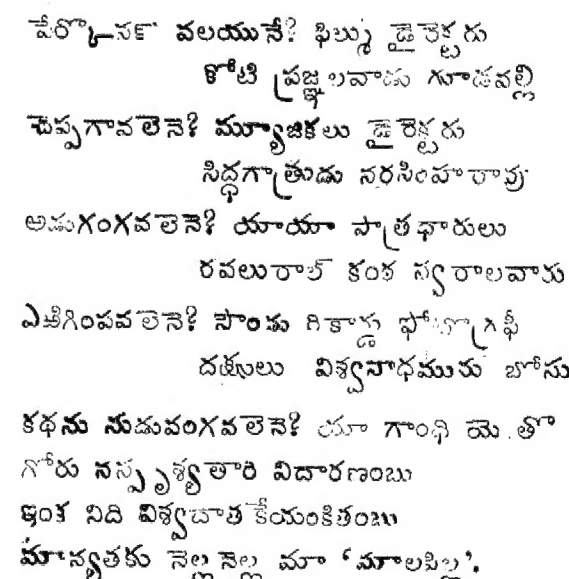 పేర్కొనఁ వలయునే? ఫిల్ము డైరెక్టరు
కోటి ప్రజ్ఞలవాడు గూడవల్లి
చెప్పగానలెనె? మ్యూజికలు డైరెక్టరు
సిద్ధగాత్రుడు నరసింహరావు
అడుగంగవలెనె? యాయా పాత్రధారులు
రవలురాల్ కంఠ స్వరాలవారు
ఎఱిగింపవలెనె? సౌండు రికార్డు ఫోటోగ్రఫీ
దక్షులు విశ్వనాధమును బోసు
కథను నుడువంగవలెనె? యా గాంధి యె తొ
గోరు నస్పృశ్యతారి విదారణంబు
ఇంక నిది విశ్వదాత కేయంకితంబు
మాన్యతకు నెల్ల నెల్ల మా 'మాలపిల్ల'.